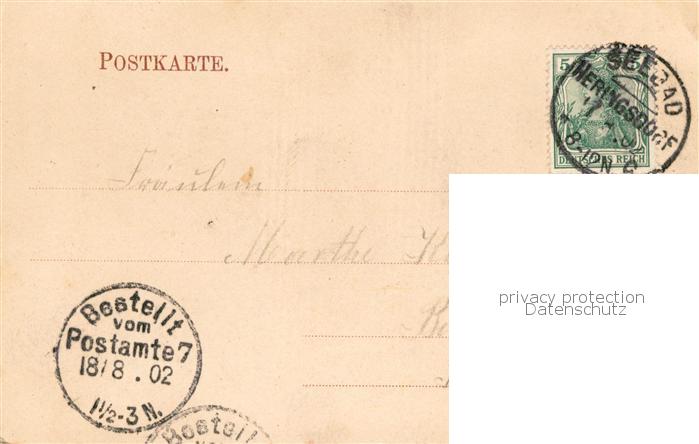 POSTKARTE.
5
SEEBAD
HERINGSDORF
17
8-
N.
DEUTSCHES REICH
Fräulein
Marthe
privacy protection
Datenschutz
Bestellt
vom
Postamte 7
18/8 . 02
1½-3 N.
Bestellt